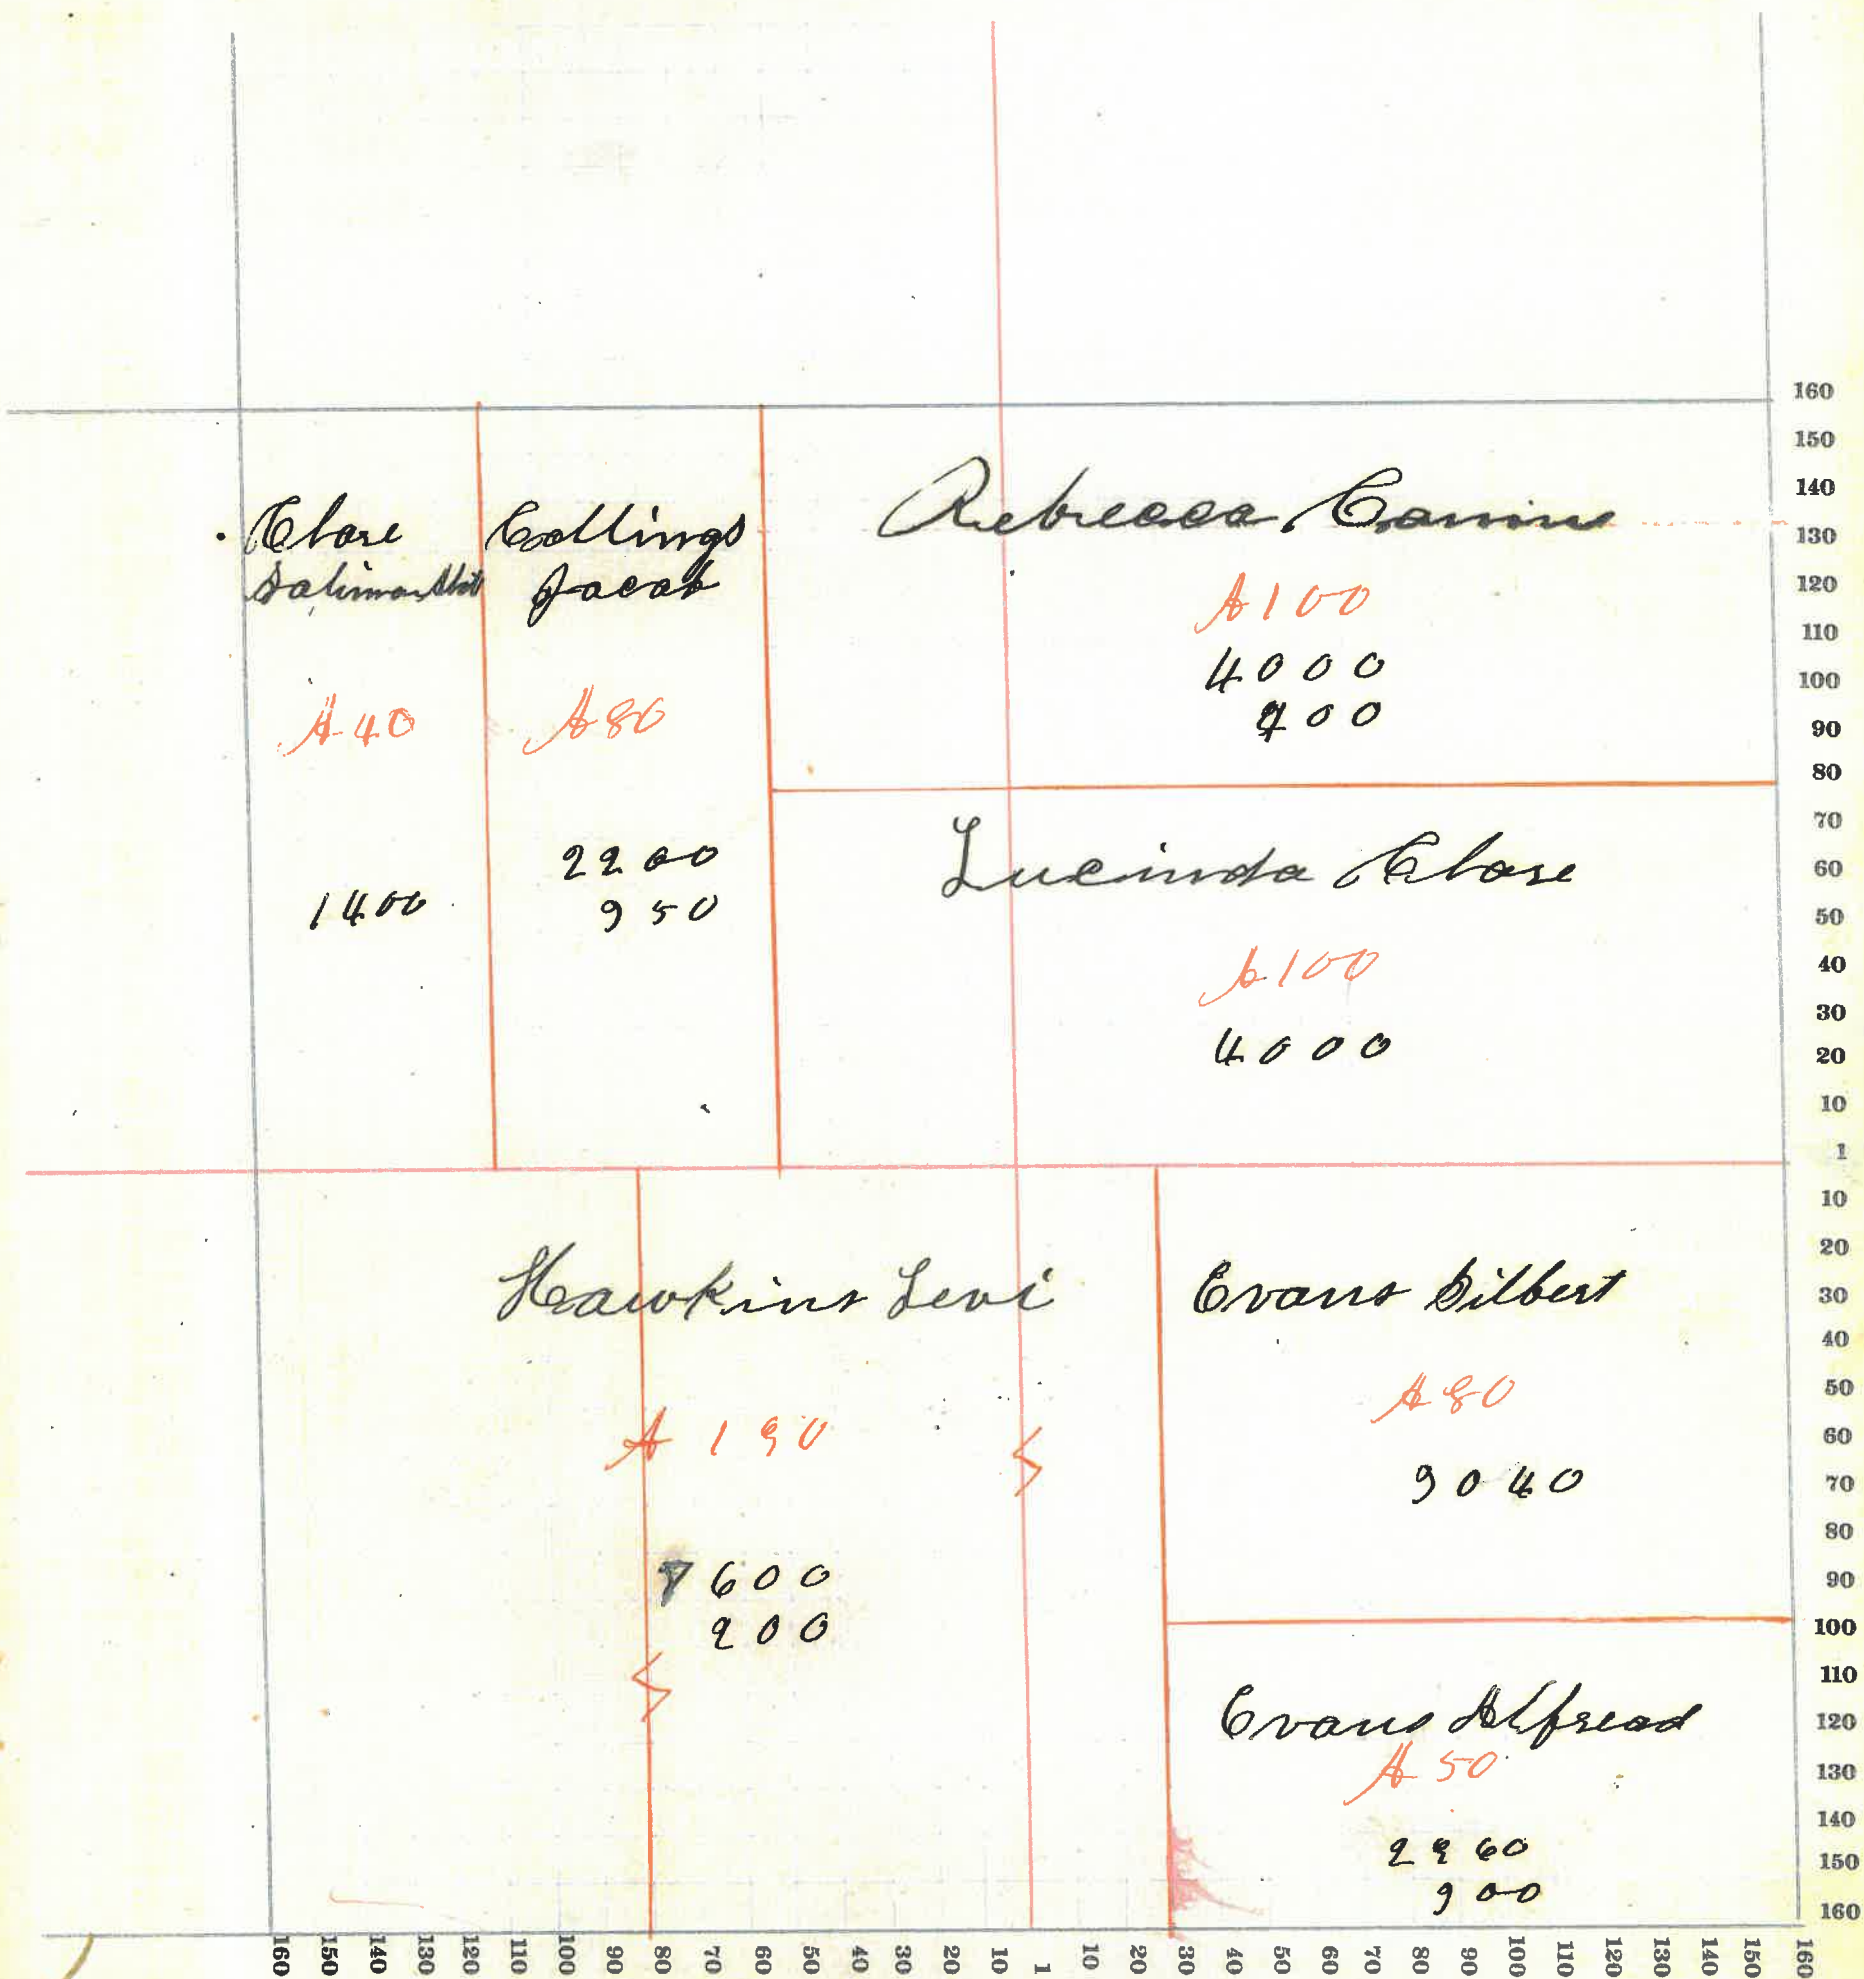 Close
Collings
Jacob
A 40
A 80
1400
2200
950
Rebecca
A 100
4000
Lucinda Close
A 100
4000
Hawkins Levi
A 190
7600
200
Evans Gilbert
A 80
Evans Alfread
A 50
160
150
140
130
120
110
100
90
80
70
60
50
40
30
20
10
1
10
20
30
40
50
60
70
80
90
100
110
120
130
140
150
160
160 150 140 130 120 110 100 90 80 70 60 50 40 30 20 10 1 10 20 30 40 50 60 70 80 90 100 110 120 130 140 150 160